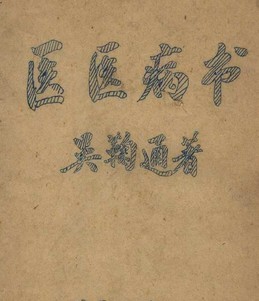 医医病书
吴鞠通著